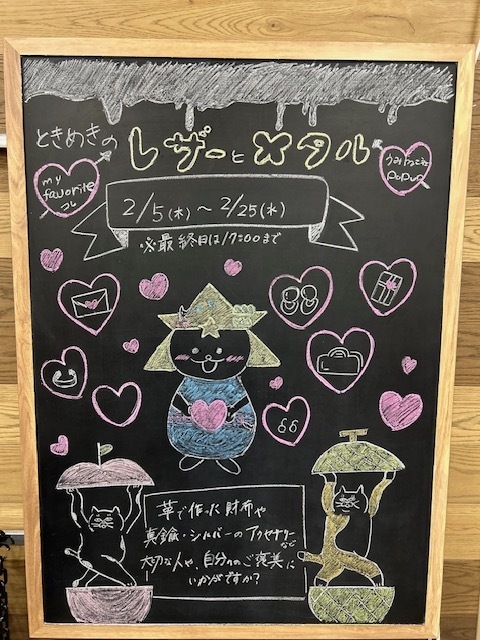 ときめきの レザーとメタル
my favorite
POPUP
2/5(木)～2/25(水)
※最終日は17:00まで
革で作った財布や
真鍮・シルバーのアクセサリーなど
大切な人や、自分へのご褒美に
いかがですか?